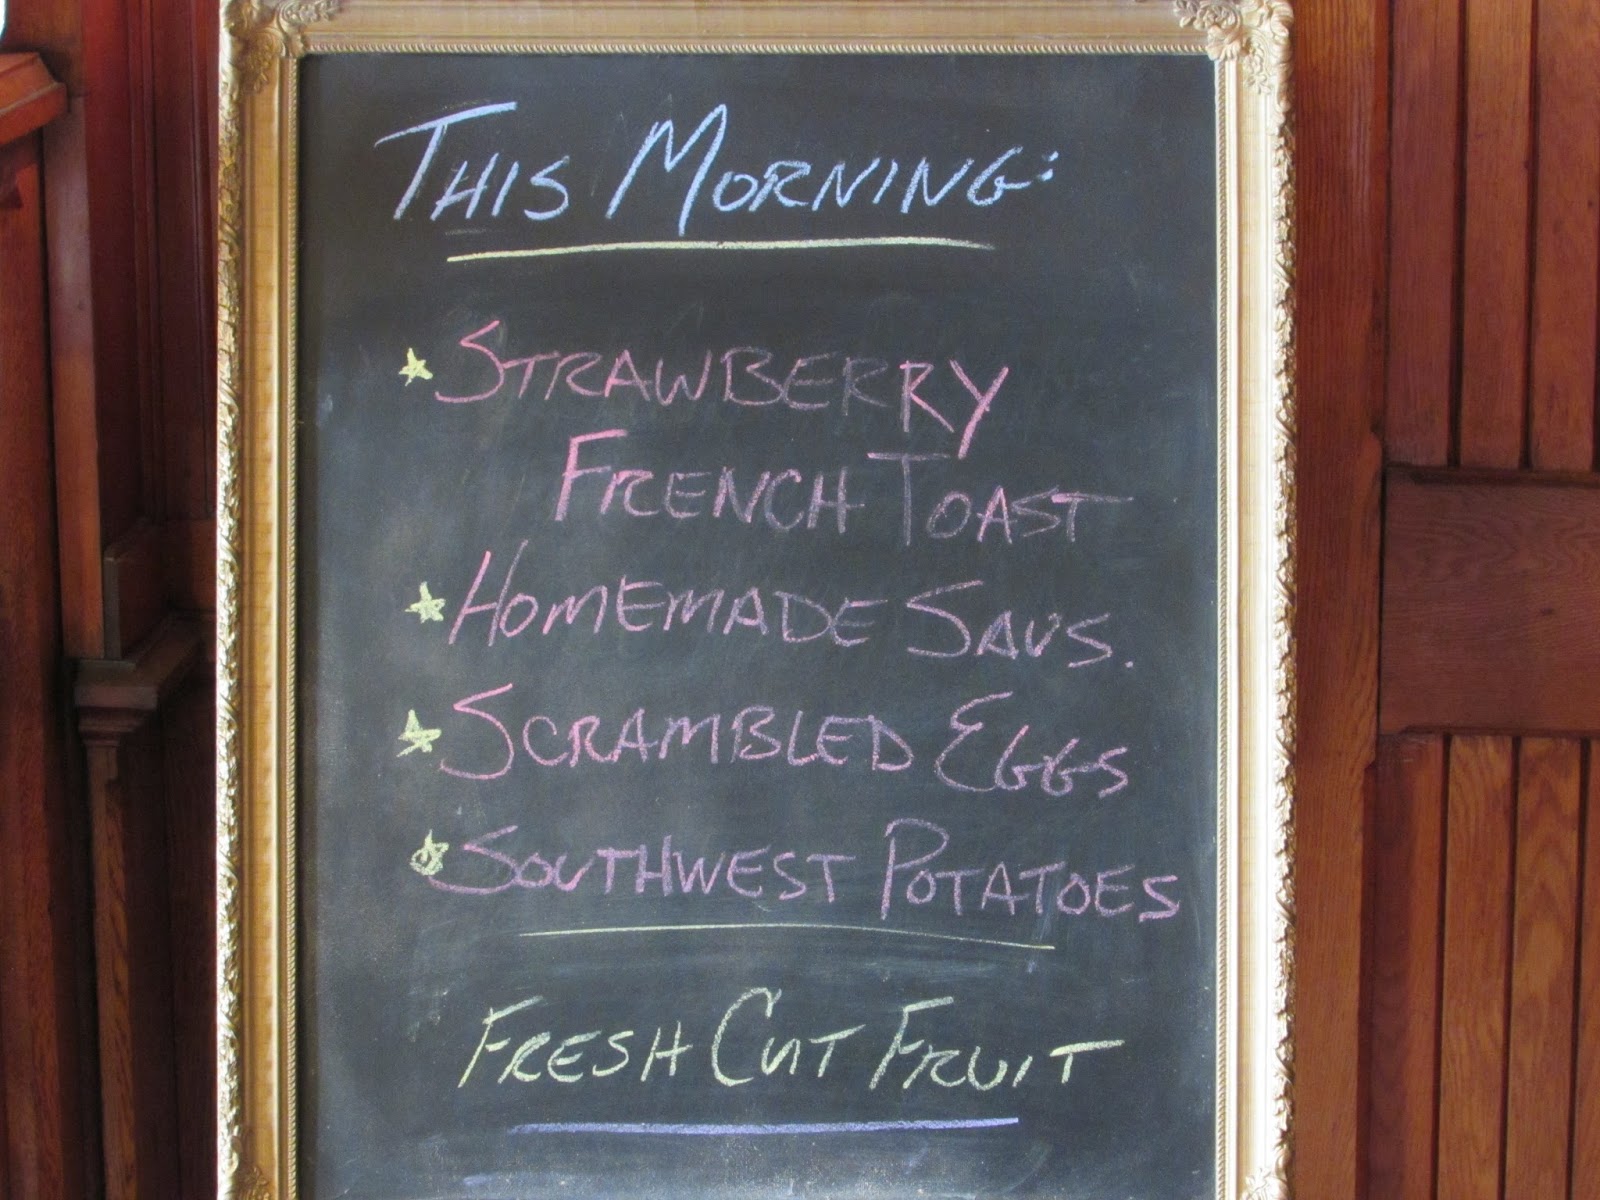 THIS MORNING:
STRAWBERRY
FRENCH TOAST
HOMEMADE SAUS.
SCRAMBLED EGGS
SOUTHWEST POTATOES
FRESH CUT FRUIT